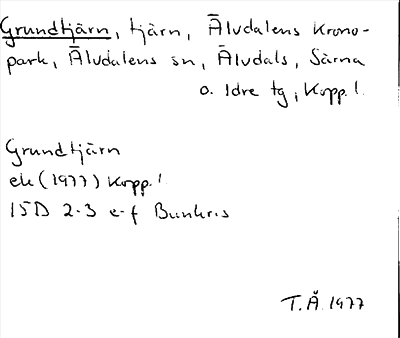 Grundtjärn, tjärn, Älvdalens Krono-
park, Älvdalens sn, Älvdals, Särna
o. Idre tg, Kopp. l.
Grundtjärn
ek (1977) Kopp. l
15D 2-3 e-f Bunkris
T.Å 1977